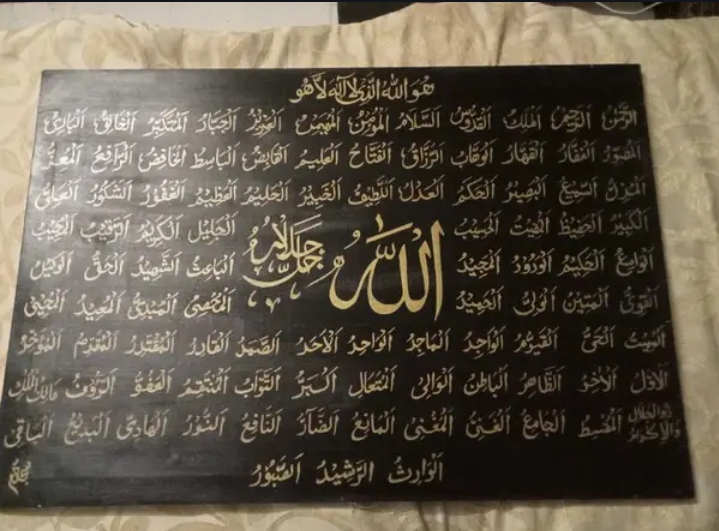 هو الله الذي لا اله الا هو
الرحمن الرحيم الملك القدوس السلام المؤمن المهيمن العزيز الجبار المتكبر الخالق البارئ
المصور الغفار القهار الوهاب الرزاق الفتاح العليم القابض الباسط الخافض الرافع المعز
المذل السميع البصير الحكم العدل اللطيف الخبير الحليم العظيم الغفور الشكور العلي
الكبير الحفيظ المقيت الحسيب الجليل الكريم الرقيب المجيب
الله جل جلاله
الواسع الحكيم الودود المجيد الباعث الشهيد الحق الوكيل
القوي المتين الولي الحميد المحصي المبدئ المعيد المحيي
المميت الحي القيوم الواجد الماجد الواحد الاحد الصمد القادر المقتدر المقدم المؤخر
الاول الاخر الظاهر الباطن الوالي المتعال البر التواب المنتقم العفو الرؤوف مالك الملك
ذو الجلال والاكرام المقسط الجامع الغني المغني المانع الضار النافع النور الهادي البديع الباقي
الوارث الرشيد الصبور